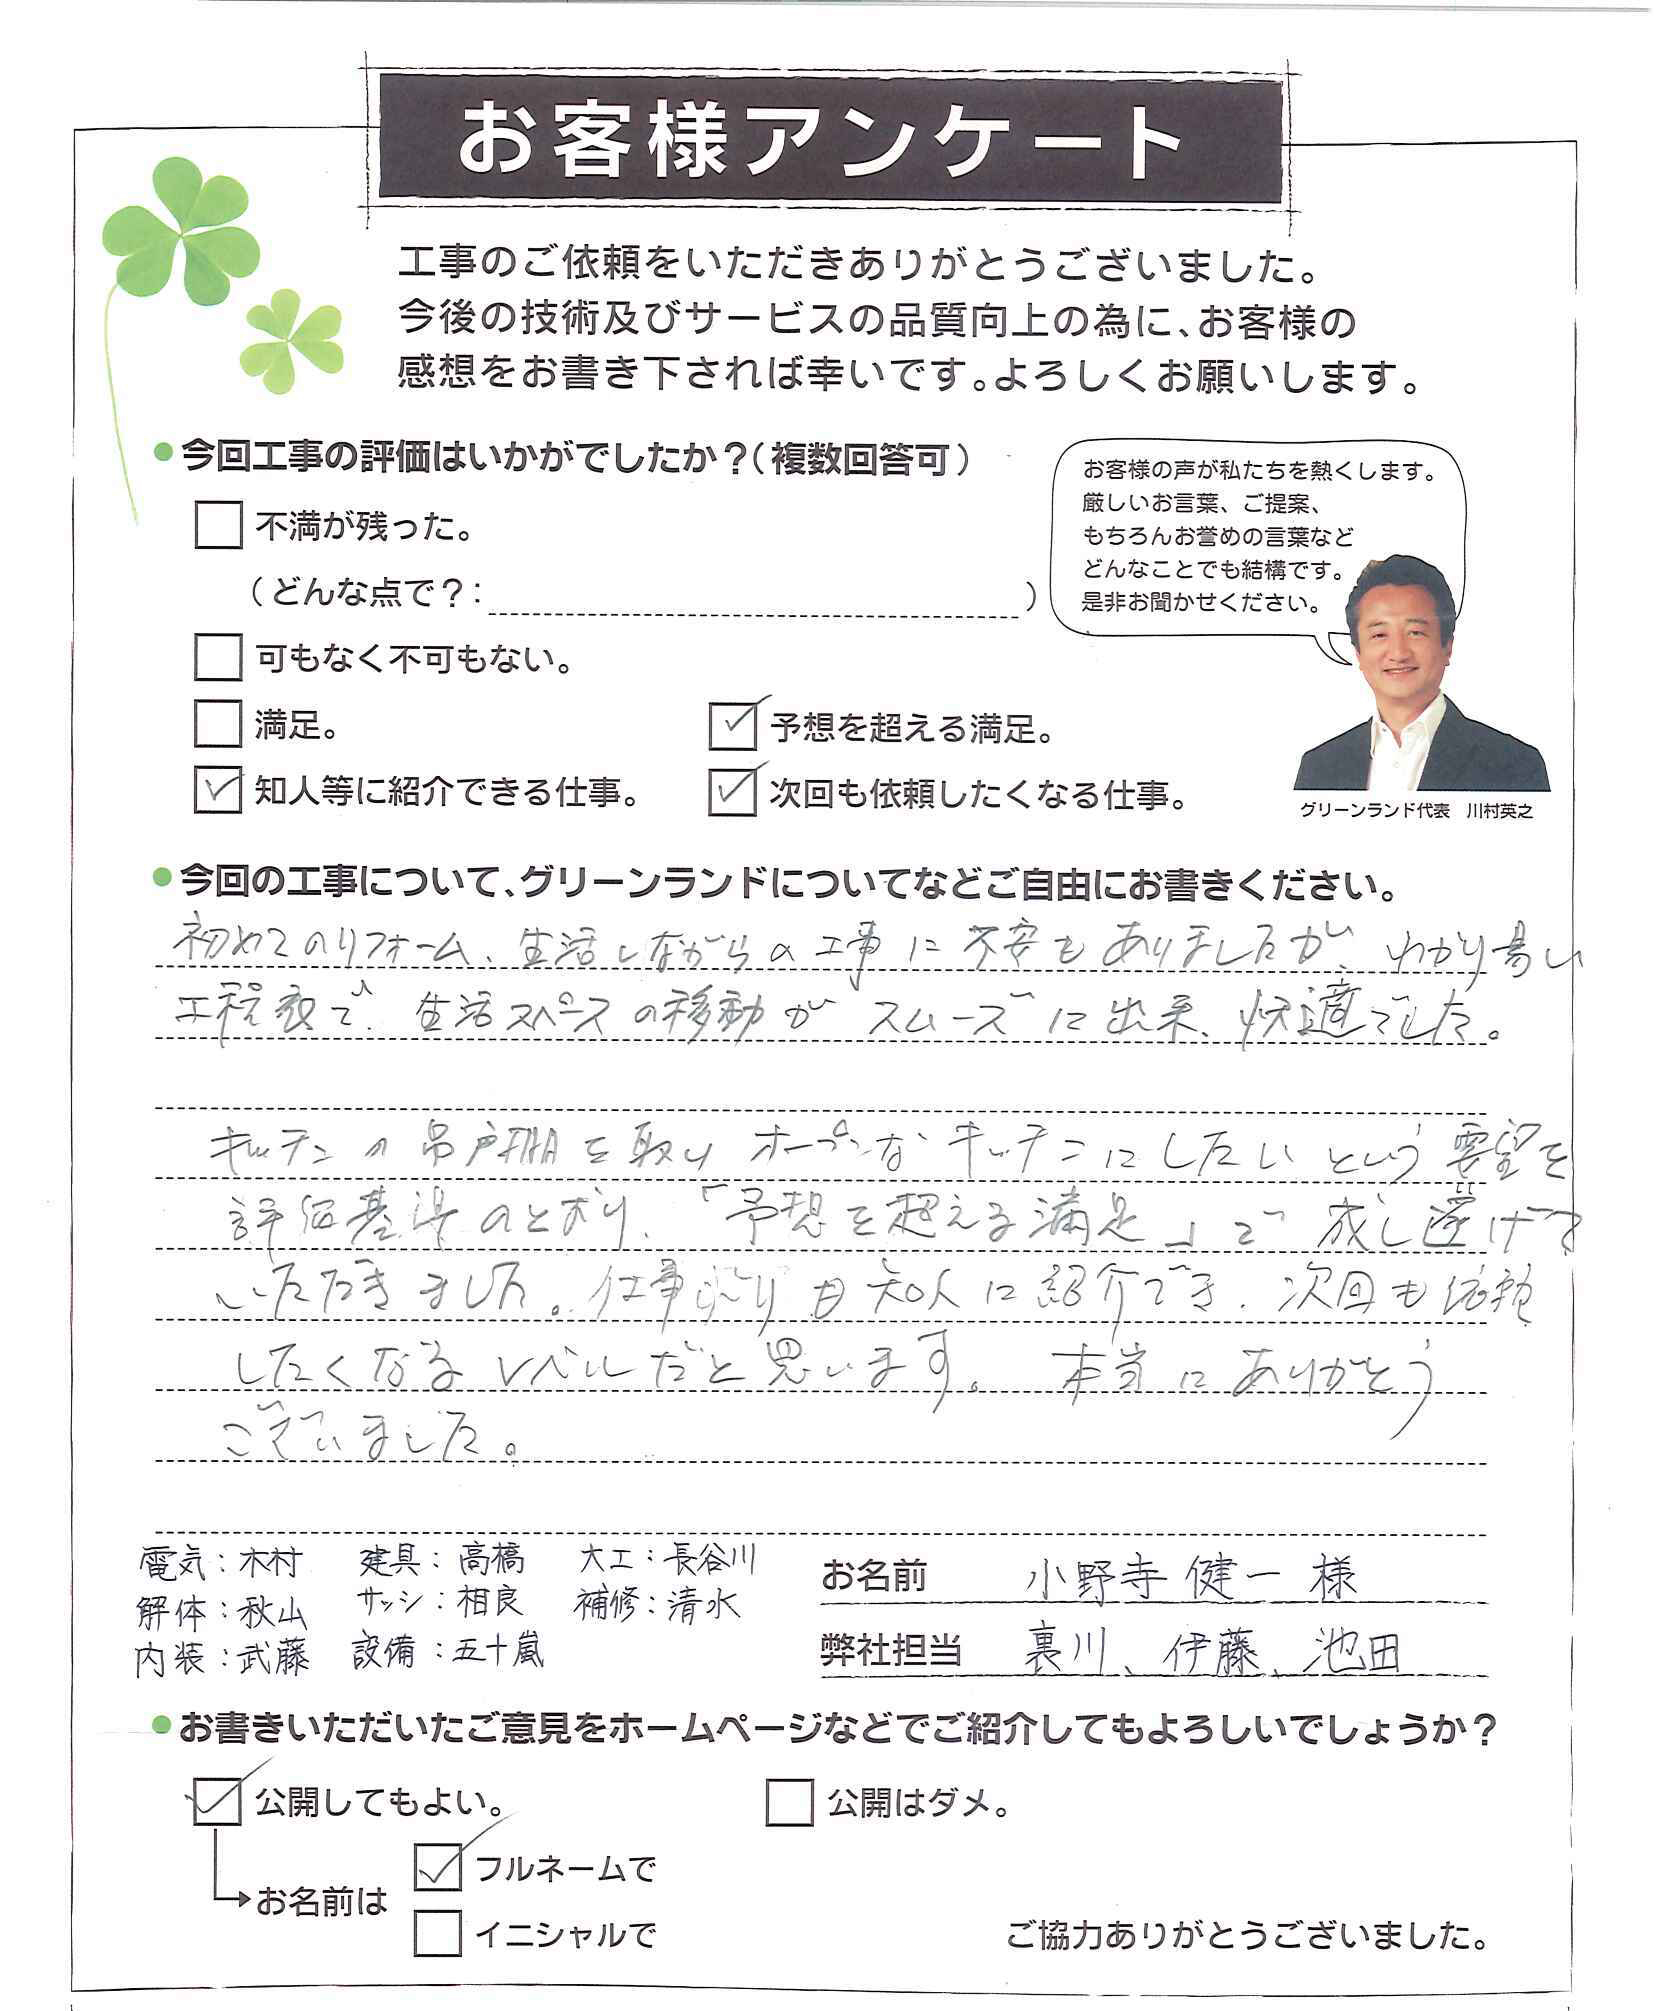 お客様アンケート
工事のご依頼をいただきありがとうございました。
今後の技術及びサービスの品質向上の為に、お客様の
感想をお書き下されば幸いです。よろしくお願いします。
今回工事の評価はいかがでしたか？（複数回答可）
不満が残った。
（どんな点で？： ）
可もなく不可もない。
満足。
予想を超える満足。
知人等に紹介できる仕事。
次回も依頼したくなる仕事。
お客様の声が私たちを熱くします。
厳しいお言葉、ご提案、
もちろんお誉めの言葉など
どんなことでも結構です。
是非お聞かせください。
グリーンランド代表　川村英之
今回の工事について、グリーンランドについてなどご自由にお書きください。
初めてのリフォーム、生活しながらの工事に不安もありましたが、わかり易い
工程表で、生活スペースの移動がスムーズに出来、快適でした。
キッチンの吊戸棚を取りオープンなキッチンにしたいという要望を
評価基準のとおり、「予想を超える満足」で成し遂げて
いただきました。仕事ぶりも知人に紹介でき、次回も依頼
したくなるレベルだと思います。本当にありがとう
ございました。
電気：木村　建具：高橋　大工：長谷川
解体：秋山　サッシ：相良　補修：清水
内装：武藤　設備：五十嵐
お名前　小野寺 健一 様
弊社担当　裏川、伊藤、池田
お書きいただいたご意見をホームページなどでご紹介してもよろしいでしょうか？
公開してもよい。
公開はダメ。
お名前は
フルネームで
イニシャルで
ご協力ありがとうございました。